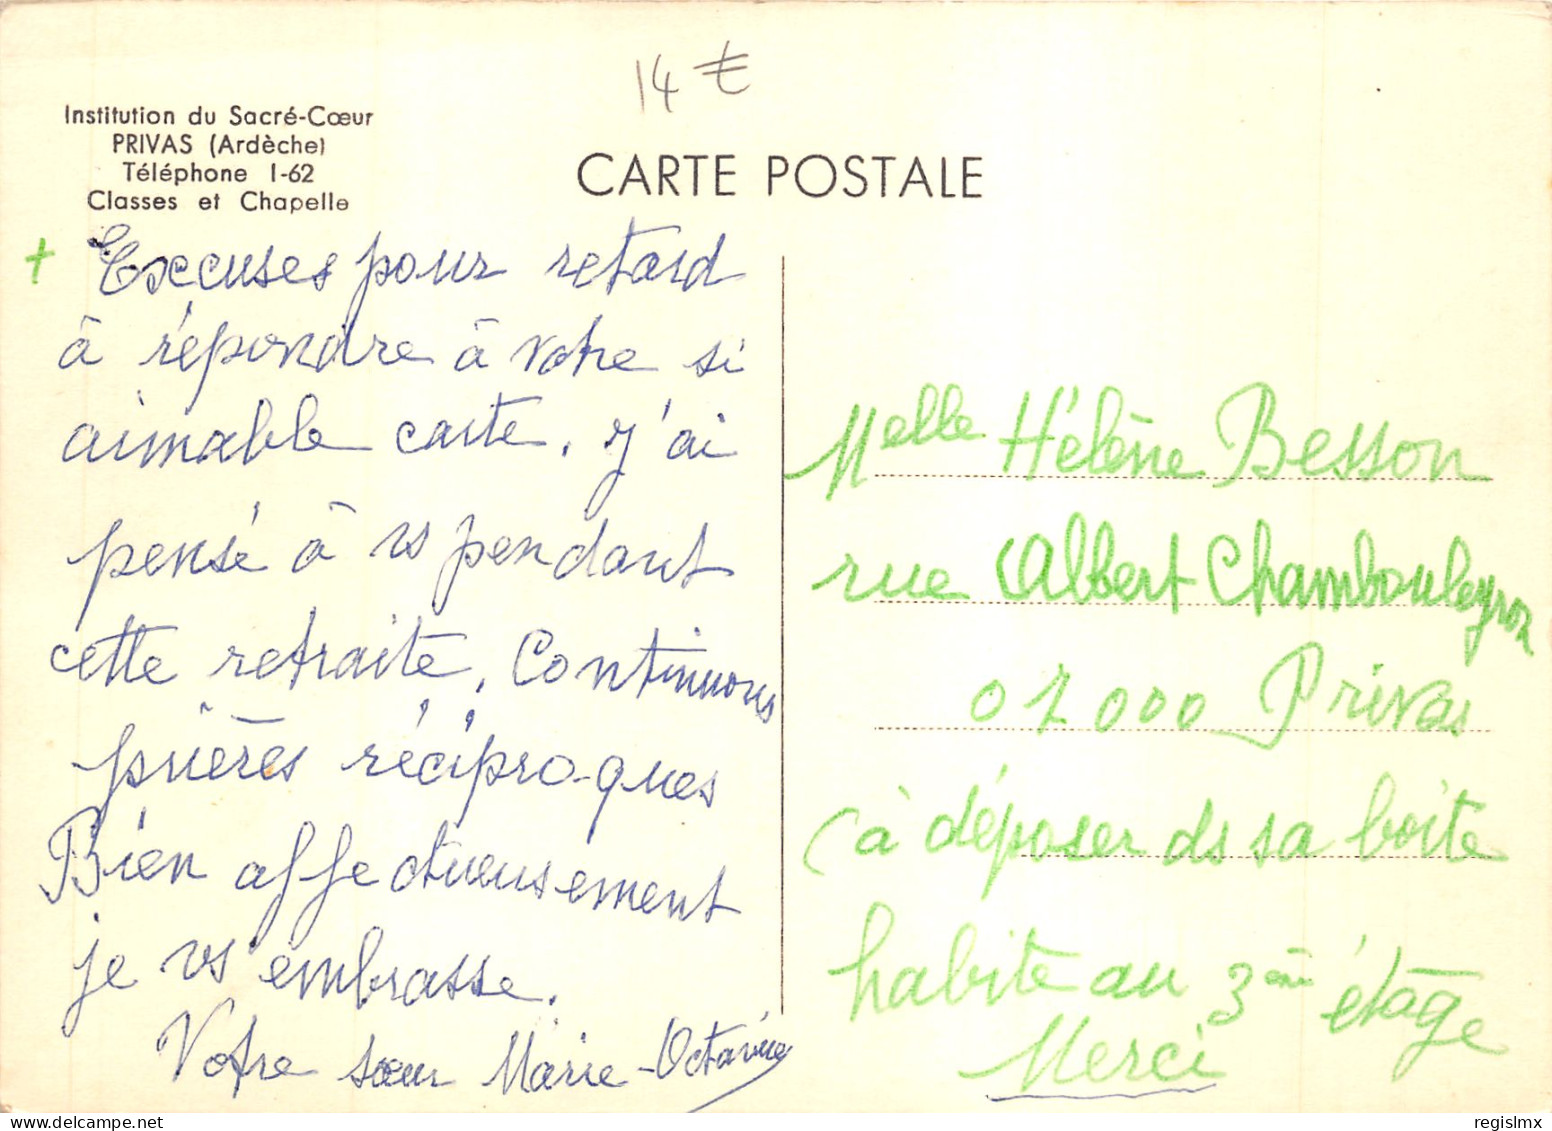 14 €
Institution du Sacré-Cœur
PRIVAS (Ardèche)
Téléphone 1-62
Classes et Chapelle
CARTE POSTALE
+ Excuses pour retard
à répondre à votre si
aimable carte. J'ai
pensé à vs pendant
cette retraite. Continuons
prières réciproques
Bien affectueusement
je vs embrasse.
Votre sœur Marie-Octavie
Melle Hélène Besson
rue Albert Chambouleyron
07000 Privas
(à déposer ds sa boîte
habite au 3ème étage
Merci
regislmx